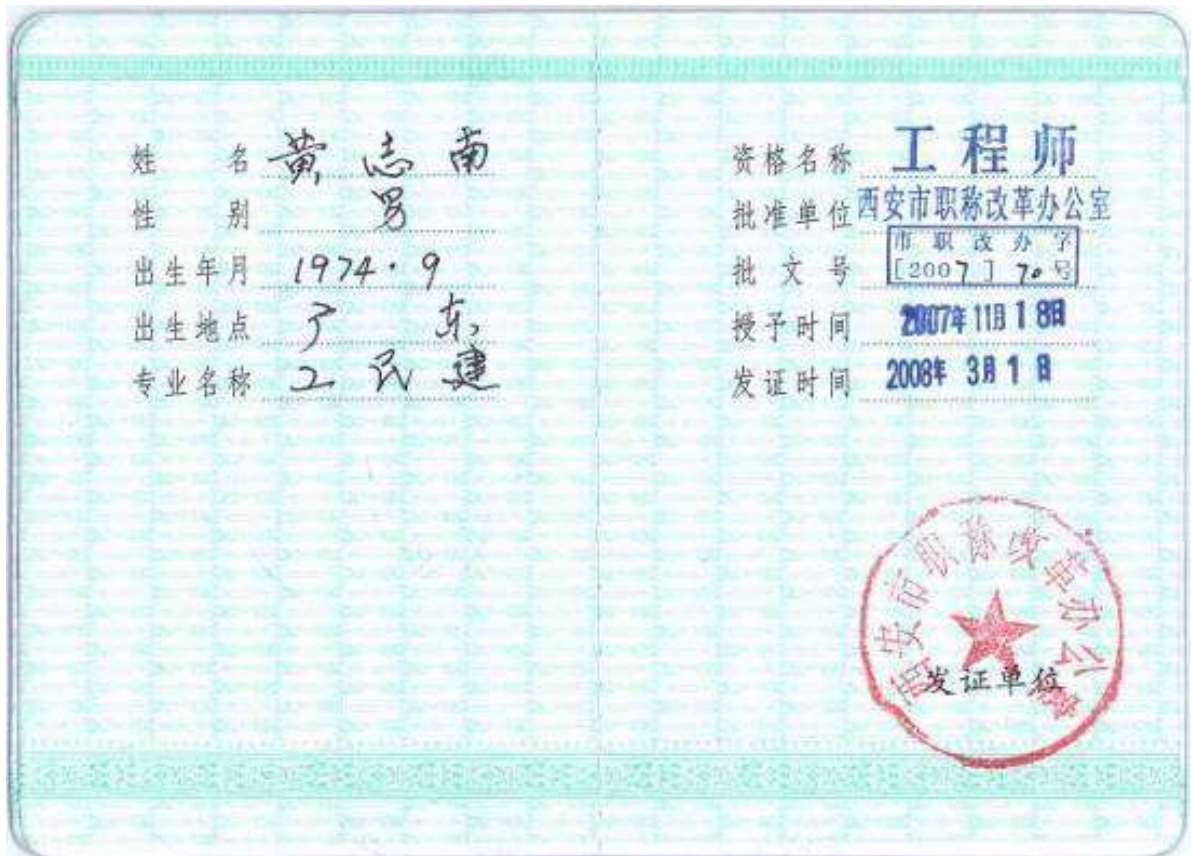 姓名 黄志南
性别 男
出生年月 1974·9
出生地点 广东
专业名称 工民建
资格名称 工程师
批准单位 西安市职称改革办公室
批文号 市职改办字
[2007]70号
授予时间 2007年11月18日
发证时间 2008年3月1日
西安市职称改革办公室
发证单位